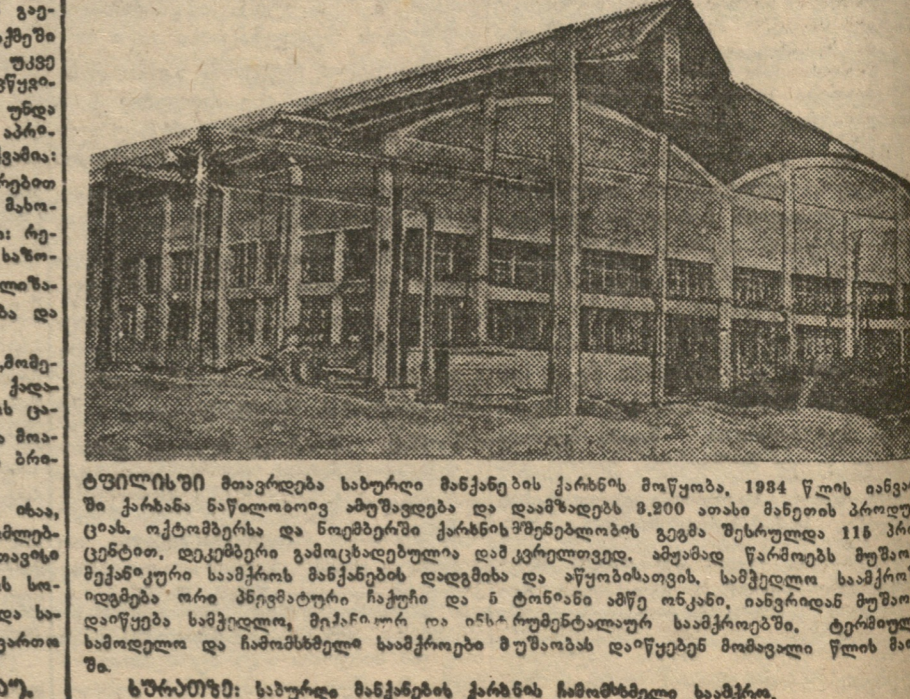 გაე-
აქმეში
უკვე
უნდა
აპრი-
რებით
მახო-
რე-
საზო-
ლიზა-
ბა და
მომე-
ქადა-
ის ცა-
მოა-
ბრი-
ისაა,
მლებ-
თავისი
ის სო-
და სა-
ტფილისში მთავრდება საბურღი მანქანების ქარხნის მოწყობა. 1934 წლის იანვა
ში ქარხანა ნაწილობრივ ამუშავდება და დაამზადებს 3,200 ათასი მანეთის პროდუ
ციას. ოქტომბერსა და ნოემბერში ქარხნის მშენებლობის გეგმა შესრულდა 115 პრ
ცენტით. დეკემბერი გამოცხადებულია დამკვრელთვედ. ამჟამად წარმოებს მუშაო
მექანიკური საამქროს მანქანების დადგმისა და აწყობისათვის. სამჭედლო საამქრო
იდგმება ორი პნევმატური ჩაქუჩი და 5 ტონიანი ამწე ონკანი. იანვრიდან მუშაო
დაიწყება სამჭედლო, მექანიკურ და ინსტრუმენტალურ საამქროებში. ტერმიულ
სამოდელო და ჩამომსხმელი საამქროები მუშაობას დაიწყებენ მომავალი წლის მაი
ში.
სურათზე: საბურღი მანქანების ქარხნის ჩამომსხმელი საამქრო.